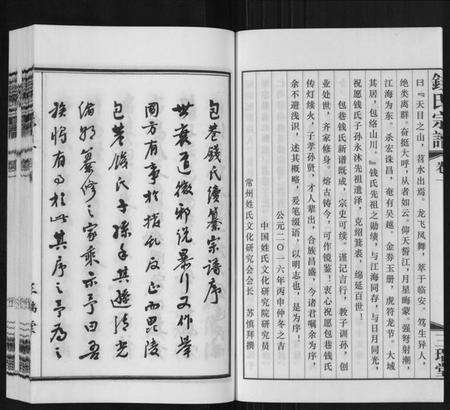 錢氏宗譜
卷一
曰『天目之山，苕水出焉，龙飞凤舞，萃于临安。笃生异人，
绝类离群。奋挺大呼，从者如云。仰天誓江，月星晦蒙。强弩射潮，
江海为东。杀宏诛昌，奄有吴越。金券玉册，虎符龙节。大城
其居，包络山川。』钱氏先祖之勋绩，与江海同存，与日月同光，
祝愿钱氏子孙永沐先祖遗泽，克绍箕裘，绵延百世！
包巷钱氏新谱既成，宗史可续。谨记吉行，教子训孙，创
业处世，齐家修身，熔古铸今，可作镜鉴。衷心祝愿包巷钱氏
传灯续火，子孝孙贤，才人辈出，合族昌盛，今诸君嘱余为序，
余不避浅识，述其概略，爰笔缀语，以明志也。是为序！
公元二〇一六年丙申仲冬之吉
中国姓氏文化研究院研究员
常州姓氏文化研究会会长 苏慎拜撰
三瑞堂
包巷钱氏续纂宗谱序
世衰道微邪说暴行又作举
国方有事于拨乱反正而毘陵
包巷钱氏子孫手其遗清光
绪朝纂修之家乘示予曰吾
族将有事於此其序之予为之